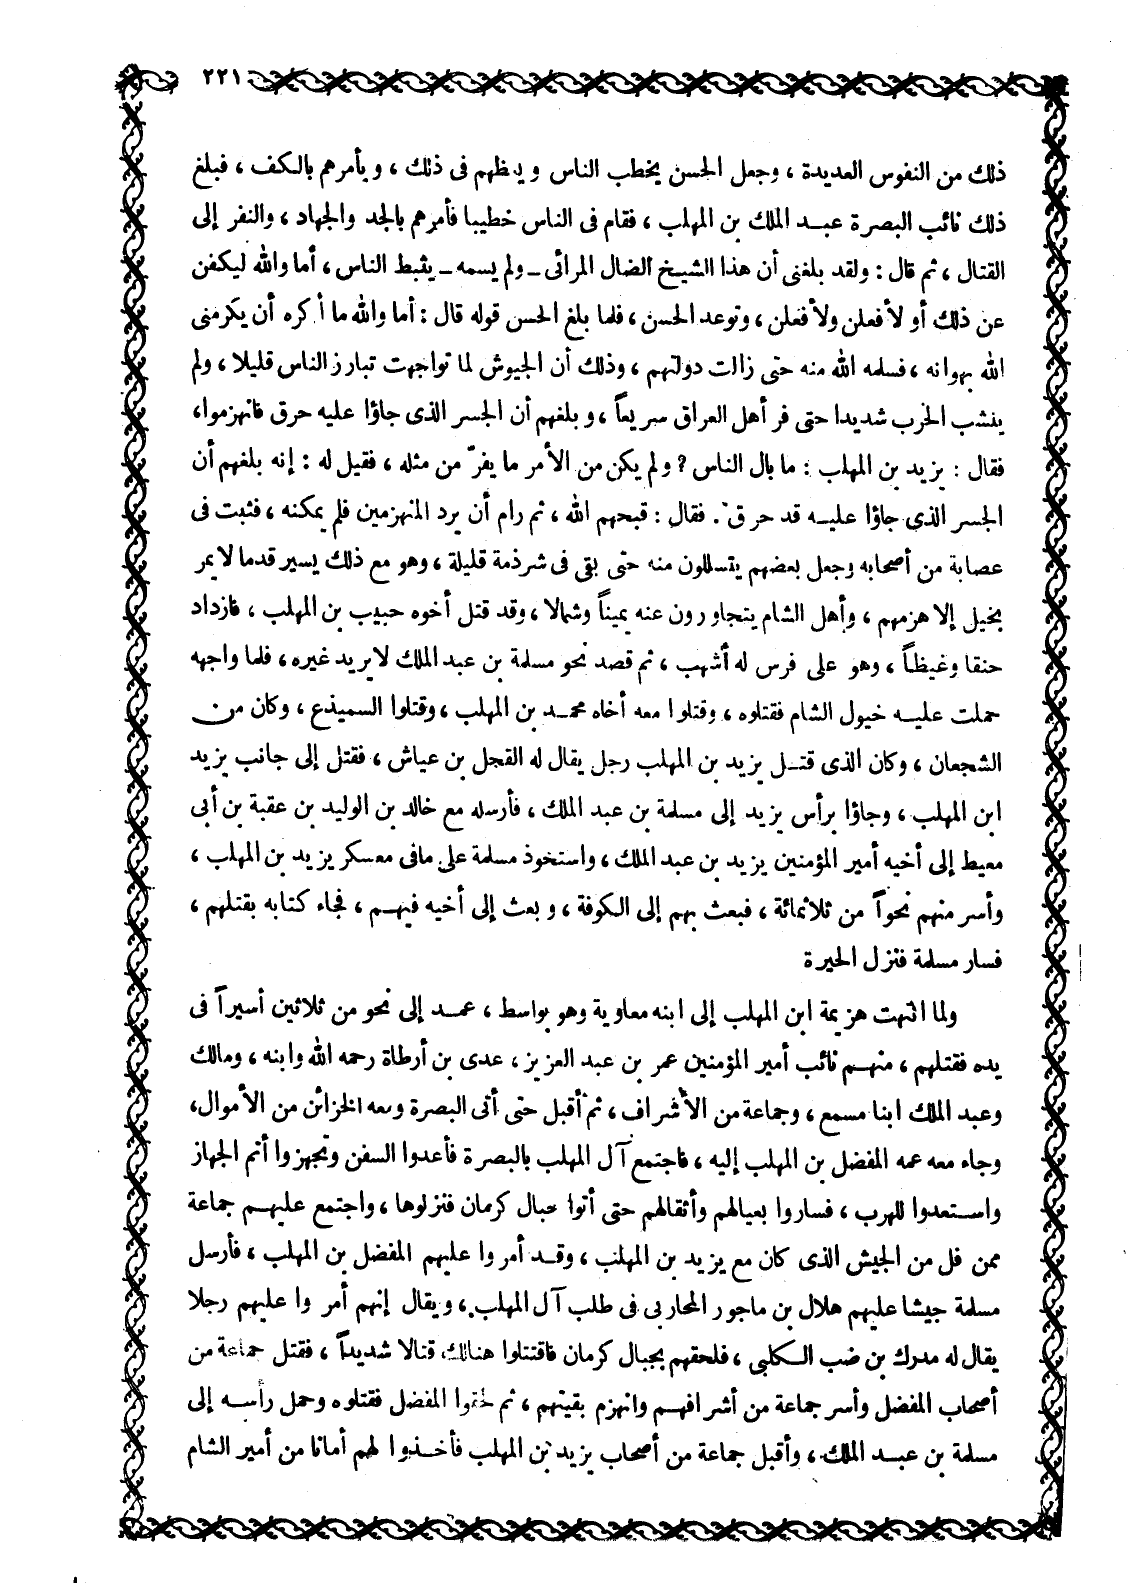 ٢٢١
ذلك من النفوس العديدة ، وجعل الحسن يخطب الناس ويعظهم فى ذلك ، ويأمرهم بالكف ، فبلغ
ذلك نائب البصرة عبد الملك بن المهلب ، فقام فى الناس خطيبا فأمرهم بالجد والجهاد ، والنفر إلى
القتال ، ثم قال : ولقد بلغنى أن هذا الشيخ الضال المرائى ــ ولم يسمه ــ يثبط الناس ، أما والله ليكفن
عن ذلك أو لأفعلن ولأفعلن ، وتوعد الحسن ، فلما بلغ الحسن قوله قال : أما والله ما أكره أن يكرمنى
الله بهوانه ، فسلمه الله منه حتى زالت دولتهم ، وذلك أن الجيوش لما تواجهت تبارز الناس قليلا ، ولم
ينشب الحرب شديدا حتى فر أهل العراق سريعاً ، وبلغهم أن الجسر الذى جاؤا عليه حرق فانهزموا،
فقال : يزيد بن المهلب : ما بال الناس ? ولم يكن من الأمر ما يفرّ من مثله ، فقيل له : إنه بلغهم أن
الجسر الذى جاؤا عليه قد حرق . فقال : قبحهم الله ، ثم رام أن يرد المنهزمين فلم يمكنه ، فثبت فى
عصابة من أصحابه وجعل بعضهم يتسللون منه حتى بقى فى شرذمة قليلة ، وهو مع ذلك يسير قدما لا يمر
بخيل إلا هزمهم ، وأهل الشام يتجاورون عنه يميناً وشمالا ، وقد قتل أخوه حبيب بن المهلب ، فازداد
حنقا وغيظاً ، وهو على فرس له أشهب ، ثم قصد نحو مسلمة بن عبد الملك لا يريد غيره ، فلما واجهه
حملت عليه خيول الشام فقتلوه ، وقتلوا معه أخاه محمد بن المهلب ، وقتلوا السميذع ، وكان من
الشجعان ، وكان الذى قتل يزيد بن المهلب رجل يقال له القجل بن عياش ، فقتل إلى جانب يزيد
ابن المهلب ، وجاؤا برأس يزيد إلى مسلمة بن عبد الملك ، فأرسله مع خالد بن الوليد بن عقبة بن أبى
معيط إلى أخيه أمير المؤمنين يزيد بن عبد الملك ، واستخوذ مسلمة على مافى معسكر يزيد بن المهلب ،
وأسر منهم نحواً من ثلاثمائة ، فبعث بهم إلى الكوفة ، وبعث إلى أخيه فيهم ، فجاء كتابه بقتلهم ،
فسار مسلمة فنزل الحيرة
ولما انتهت هزيمة ابن المهلب إلى ابنه معاوية وهو بواسط ، عمد إلى نحو من ثلاثين أسيراً فى
يده فقتلهم ، منهم نائب أمير المؤمنين عمر بن عبد العزيز ، عدى بن أرطاة رحمه الله وابنه ، ومالك
وعبد الملك ابنا مسمع ، وجماعة من الأشراف ، ثم أقبل حتى أتى البصرة ومعه الخزائن من الأموال،
وجاء معه عمه المفضل بن المهلب إليه ، فاجتمع آل المهلب بالبصرة فأعدوا السفن وتجهزوا أتم الجهاز
واستعدوا للهرب ، فساروا بعيالهم وأثقالهم حتى أتوا جبال كرمان فنزلوها ، واجتمع عليهم جماعة
ممن فل من الجيش الذى كان مع يزيد بن المهلب ، وقد أمروا عليهم المفضل بن المهلب ، فأرسل
مسلمة جيشا عليهم هلال بن ماجور المحاربى فى طلب آل المهلب ، ويقال إنهم أمروا عليهم رجلا
يقال له مدرك بن ضب الكلبى ، فلحقهم بجبال كرمان فاقتتلوا هنالك قتالا شديداً ، فقتل جماعة من
أصحاب المفضل وأسر جماعة من أشرافهم وانهزم بقيتهم ، ثم لحقوا المفضل فقتلوه وحمل رأسه إلى
مسلمة بن عبد الملك ، وأقبل جماعة من أصحاب يزيد بن المهلب فأخذوا لهم أمانا من أمير الشام